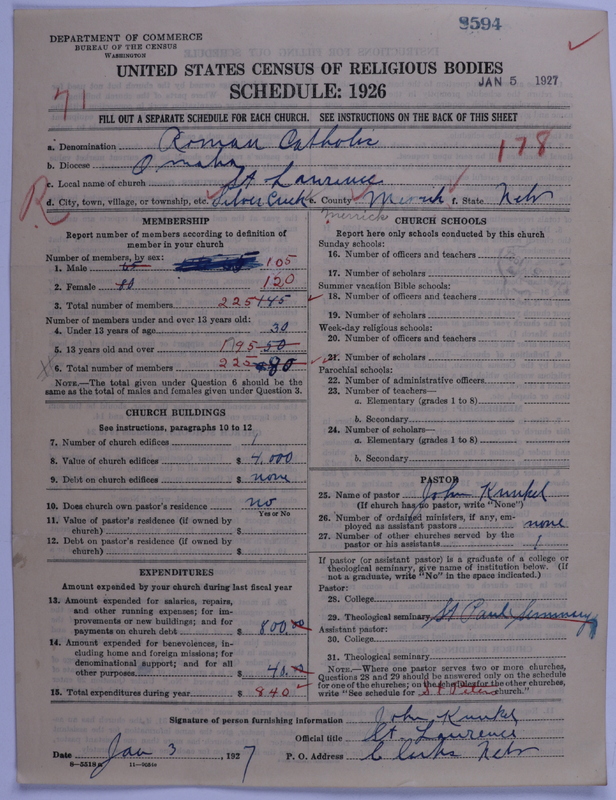 8594
DEPARTMENT OF COMMERCE
BUREAU OF THE CENSUS
WASHINGTON
UNITED STATES CENSUS OF RELIGIOUS BODIES
JAN 5 1927
SCHEDULE: 1926
71
FILL OUT A SEPARATE SCHEDULE FOR EACH CHURCH. SEE INSTRUCTIONS ON THE BACK OF THIS SHEET
a. Denomination Roman Catholic
178
b. Diocese Omaha
c. Local name of church St Laurence
R
d. City, town, village, or township, etc. Silver Creek e. County Merrick f. State Nebr
Merrick
MEMBERSHIP
Report number of members according to definition of member in your church
Number of members, by sex:
1. Male 65 105
2. Female 80 120
3. Total number of members 225 145
Number of members under and over 13 years old:
4. Under 13 years of age 30
5. 13 years old and over 195 50
6. Total number of members 225 80
NOTE.—The total given under Question 6 should be the same as the total of males and females given under Question 3.
CHURCH BUILDINGS
See instructions, paragraphs 10 to 12
7. Number of church edifices 1
8. Value of church edifices $ 4,000
9. Debt on church edifices $ none
10. Does church own pastor's residence no
Yes or No
11. Value of pastor's residence (if owned by church) $
12. Debt on pastor's residence (if owned by church) $
EXPENDITURES
Amount expended by your church during last fiscal year
13. Amount expended for salaries, repairs, and other running expenses; for improvements or new buildings; and for payments on church debt $ 800.00
14. Amount expended for benevolences, including home and foreign missions; for denominational support; and for all other purposes $ 40.00
15. Total expenditures during year $ 840
CHURCH SCHOOLS
Report here only schools conducted by this church
Sunday schools:
16. Number of officers and teachers
17. Number of scholars
Summer vacation Bible schools:
18. Number of officers and teachers
19. Number of scholars
Week-day religious schools:
20. Number of officers and teachers
21. Number of scholars
Parochial schools:
22. Number of administrative officers
23. Number of teachers—
a. Elementary (grades 1 to 8)
b. Secondary
24. Number of scholars—
a. Elementary (grades 1 to 8)
b. Secondary
PASTOR
25. Name of pastor John Kunkel
(If church has no pastor, write "None")
26. Number of ordained ministers, if any, employed as assistant pastors none
27. Number of other churches served by the pastor or his assistants 1
If pastor (or assistant pastor) is a graduate of a college or theological seminary, give name of institution below. (If not a graduate, write "No" in the space indicated.)
Pastor:
28. College
29. Theological seminary St Paul Seminary
Assistant pastor:
30. College
31. Theological seminary
NOTE.—Where one pastor serves two or more churches, Questions 28 and 29 should be answered only on the schedule for one of the churches; on the schedules for the other churches, write "See schedule for St Peters church."
Signature of person furnishing information John Kunkel
Official title St. Laurence
Date Jan 3, 1927 P. O. Address Clarks Nebr
8—5518a 11—9684